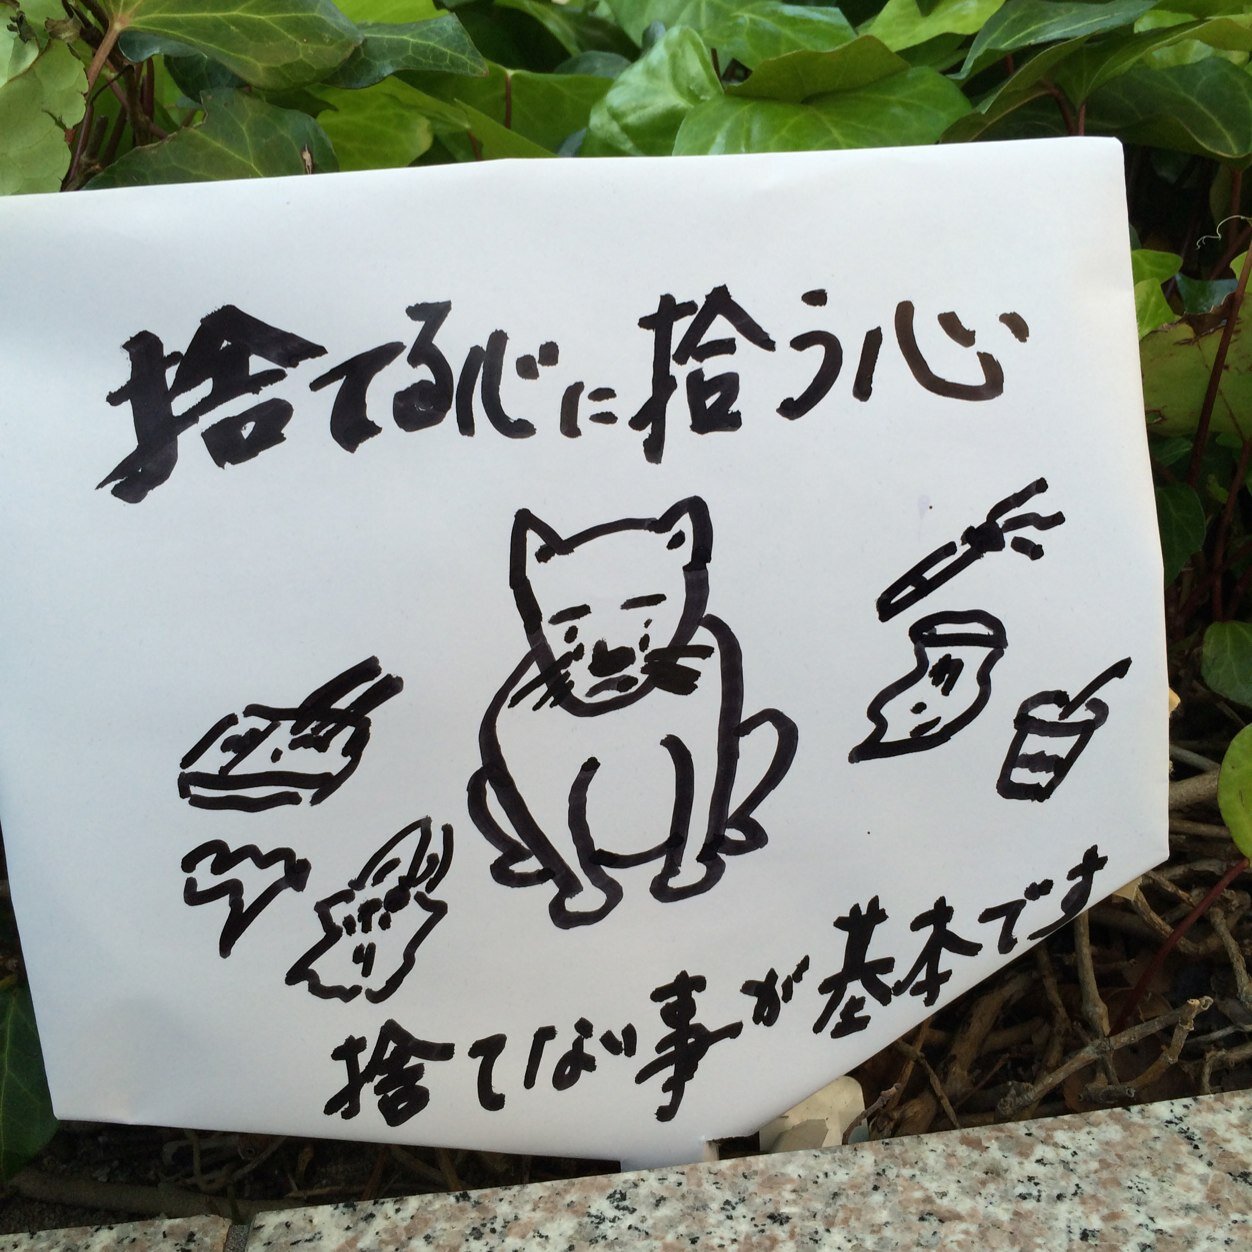 捨てる心に拾う心
捨てない事が基本です